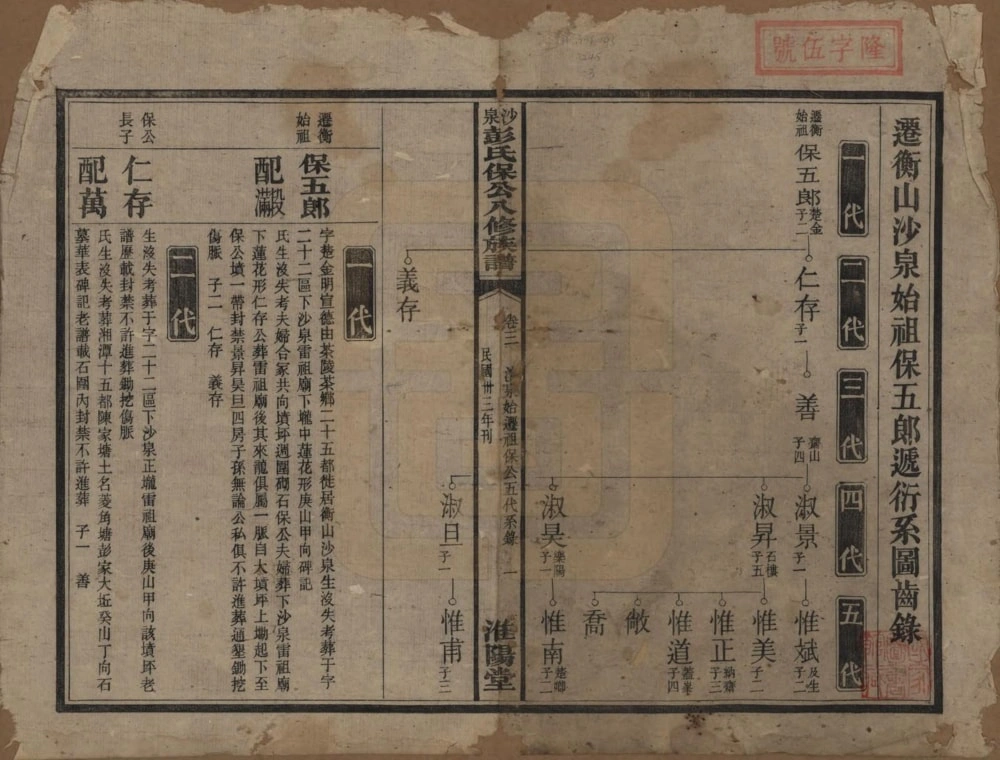 隆字伍號
遷衡山沙泉始祖保五郎遞衍系圖齒錄
一代
二代
三代
四代
五代
遷衡始祖 保五郎 楚金 子二
仁存 子一
善 齋山 子四
淑景 子一
惟斌 及生 子二
淑昇 石樓 子五
惟美 子二
惟正 子三
惟道 子四
敞
喬
淑昊 樂陽 子一
惟南 子二
義存
淑旦 子一
惟甫 子三
沙泉彭氏保公八修族譜
卷三
沙泉始遷祖保公五代系錄 一
民國卅三年刊
淮陽堂
一代
遷衡始祖
保五郎
配
字楚金明宣德由茶陵茶鄉二十五都徙居衡山沙泉生沒失考葬于字
二十二區下沙泉雷祖廟下壠中蓮花形庚山甲向碑記
氏生沒失考夫婦合冢共向墳坪週圍砌石保公夫婦葬下沙泉雷祖廟
下蓮花形仁存公葬雷祖廟後其來龍俱屬一脈自大墳坪上墈起下至
保公墳一帶封禁景昇昊旦四房子孫無論公私俱不許進葬逼墾鋤挖
傷脈 子二 仁存 義存
二代
保公長子
仁存
配萬
生沒失考葬于字二十二區下沙泉正壠雷祖廟後庚山甲向該墳坪老
譜歷載封禁不許進葬鋤挖傷脈
氏生沒失考葬湘潭十五都陳家塘土名菱角塘彭家大坵癸山丁向石
墓華表碑記老譜載石圍內封禁不許進葬 子一 善